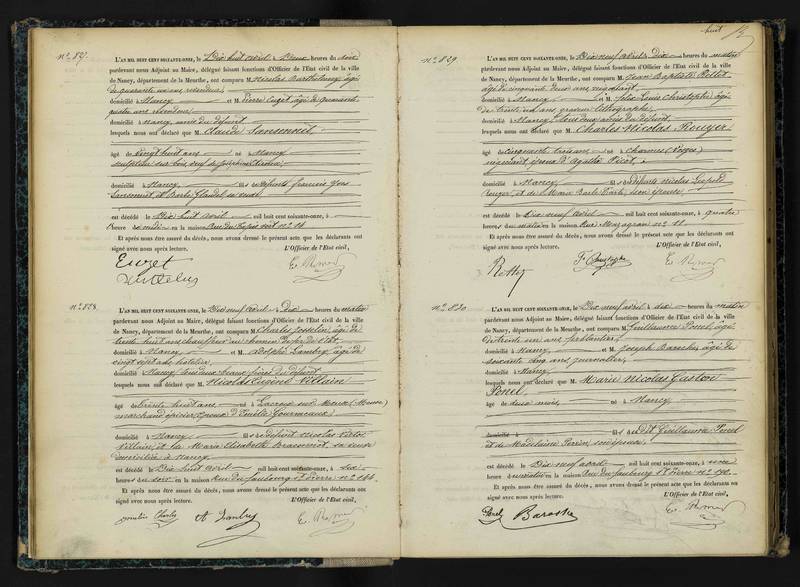 n° 827.
L'AN MIL HUIT CENT SOIXANTE-ONZE, le Dix huit avril à Deux heures du soir
pardevant nous Adjoint au Maire, délégué faisant fonctions d'Officier de l'État civil de la ville
de Nancy, département de la Meurthe, ont comparu M. Nicolas Barthélemy âgé
de quarante un ans
domicilié à Nancy et M. Pierre Euzet âgé de quarante
quatre ans
domicilié à Nancy amis du défunt
lesquels nous ont déclaré que M. Claude Sansonnet
âgé de vingt huit ans né à Nancy
sculpteur sur bois, veuf de Joséphine
domicilié à Nancy fils de défunts François
Sansonnet et Barbe Claudel
est décédé le Dix huit avril mil huit cent soixante-onze, à
heure en la maison Rue
Et après nous être assuré du décès, nous avons dressé le présent acte que les déclarants ont
signé avec nous après lecture. L'Officier de l'État civil,
Euzet
n° 828.
L'AN MIL HUIT CENT SOIXANTE-ONZE, le Dix neuf avril à Dix heures du matin
pardevant nous Adjoint au Maire, délégué faisant fonctions d'Officier de l'État civil de la ville
de Nancy, département de la Meurthe, ont comparu M. Charles Josselin âgé de
trente huit ans chauffeur au chemin de fer de l'Est
domicilié à Nancy et M. Adolphe Lambry âgé de
vingt sept ans
domicilié à Nancy tous deux beaux frères du défunt
lesquels nous ont déclaré que M. Nicolas Eugène Villain
âgé de trente huit ans né à Lacroix sur Meuse (Meuse)
marchand épicier époux d'Emélie Gourmeaux
domicilié à Nancy fils de défunt Nicolas Victor
Villain et de Marie Elisabeth Braconnot, sa veuve
domiciliée à Nancy
est décédé le Dix huit avril mil huit cent soixante-onze, à six
heures du soir en la maison Rue du faubourg St Pierre n° 144
Et après nous être assuré du décès, nous avons dressé le présent acte que les déclarants ont
signé avec nous après lecture. L'Officier de l'État civil,
Charles A Lambry
huit
n° 829.
L'AN MIL HUIT CENT SOIXANTE-ONZE, le Dix neuf avril à Dix heures du matin
pardevant nous Adjoint au Maire, délégué faisant fonctions d'Officier de l'État civil de la ville
de Nancy, département de la Meurthe, ont comparu M. Jean Baptiste
âgé de cinquante deux ans négociant
domicilié à Nancy et M. Félix Louis Christophe âgé
de trente neuf ans, graveur lithographe
domicilié à Nancy tous deux amis du défunt
lesquels nous ont déclaré que M. Charles Nicolas Rouyer
âgé de cinquante trois ans né à Charmes (Vosges)
négociant époux d'Agathe Picot
domicilié à Nancy fils de défunts Nicolas Léopold
Rouyer et de Marie Barbe son épouse
est décédé le Dix neuf avril mil huit cent soixante-onze, à quatre
heures du matin en la maison Rue Mazagran n° 11
Et après nous être assuré du décès, nous avons dressé le présent acte que les déclarants ont
signé avec nous après lecture. L'Officier de l'État civil,
F. Christophe
n° 830
L'AN MIL HUIT CENT SOIXANTE-ONZE, le Dix neuf avril à Dix heures du matin
pardevant nous Adjoint au Maire, délégué faisant fonctions d'Officier de l'État civil de la ville
de Nancy, département de la Meurthe, ont comparu M. Guillaume Penel âgé
de trente un ans ferblantier
domicilié à Nancy et M. Joseph âgé de
soixante cinq ans, journalier
domicilié à Nancy
lesquels nous ont déclaré que M. Marie Nicolas Gaston
Penel
âgé de deux mois, né à Nancy
domicilié à fils de dit Guillaume Penel
et de Madeleine Perrin son épouse
est décédé le Dix neuf avril mil huit cent soixante-onze, à une
heure du matin en la maison Rue du faubourg St Pierre n°
Et après nous être assuré du décès, nous avons dressé le présent acte que les déclarants ont
signé avec nous après lecture. L'Officier de l'État civil,
Penel